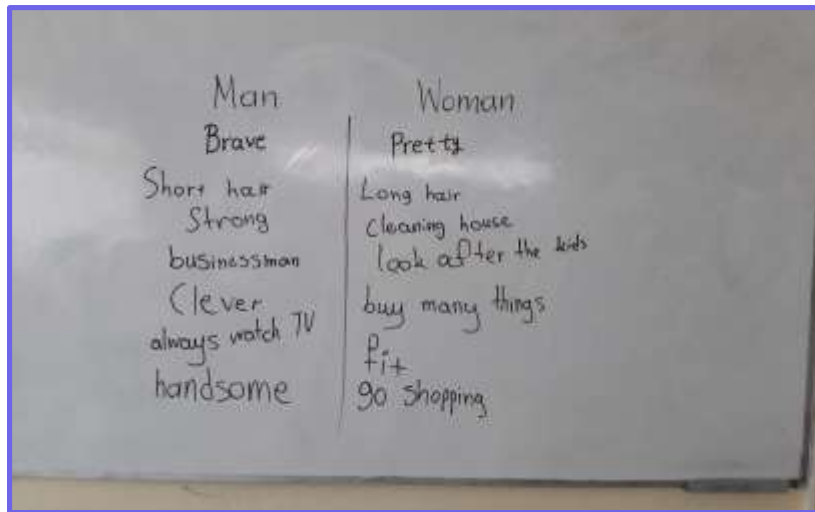 Man
Brave
Short hair
Strong
businessman
Clever
always watch TV
handsome
Woman
Pretty
Long hair
cleaning house
look after the kids
buy many things
fit
go shopping